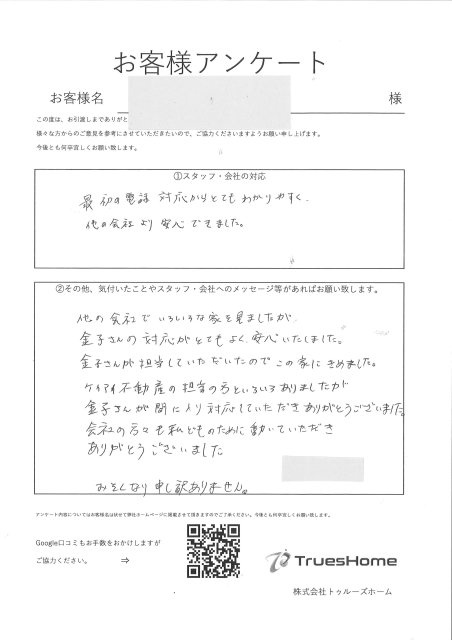 お客様アンケート
お客様名
様
この度は、お引渡しまでありがと
様々な方からのご意見を参考にさせていただきたいので、ご協力くださいますようお願い申し上げます。
今後とも何卒宜しくお願い致します。
①スタッフ・会社の対応
最初の電話対応からとてもわかりやすく、
他の会社より安心できました。
②その他、気付いたことやスタッフ・会社へのメッセージ等があればお願い致します。
他の会社でいろいろな家を見ましたが
金子さんの対応がとてもよく、安心いたしました。
金子さんが担当していただいたのでこの家にきめました。
ケイアイ不動産の担当の方といろいろありましたが
金子さんが間に入り対応していただきありがとうございました。
会社の方々も私どものために動いていただき
ありがとうございました
おそくなり申し訳ありません。
アンケート内容についてはお客様名は伏せて弊社ホームページに掲載させて頂きますのでご了承ください。今後とも何卒宜しくお願い致します。
Google口コミもお手数をおかけしますが
ご協力ください。 ⇒
TruesHome
株式会社トゥルーズホーム